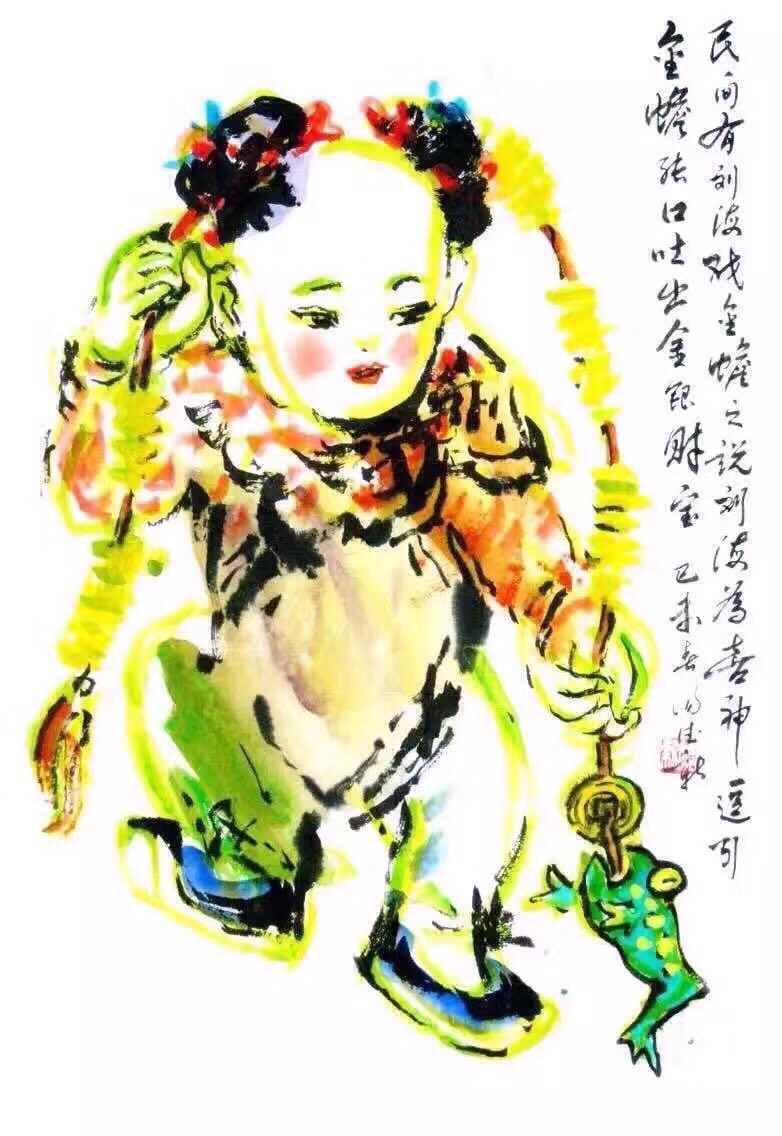 民间有刘海戏金蟾之说刘海为喜神逗引
金蟾张口吐出金银财宝 己未春